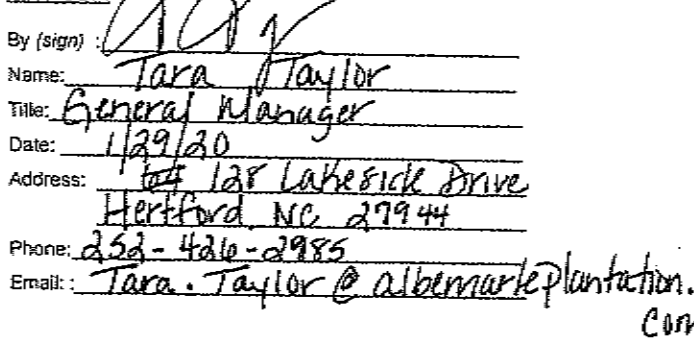 By (sign) :
Name: Tara Taylor
Title: General Manager
Date: 1/29/20
Address: 128 Lakeside Drive
Hertford NC 27944
Phone: 252-426-2985
Email: : Tara.Taylor@albemarleplantation.
com